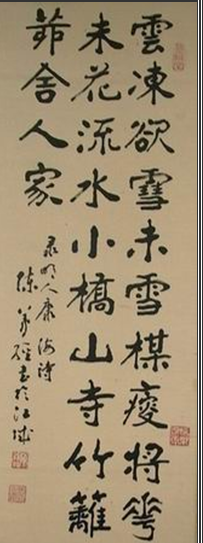 雲凍欲雪未雪楳瘦將華
未花流水小橋山寺竹籬
茆舍人家
录明人康海詩
陳義經書於江城